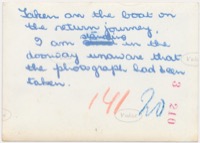 Taken on the boat on
the return journey.
standing
I am in the
doorway unaware that
the photograph had been
taken.
141 20